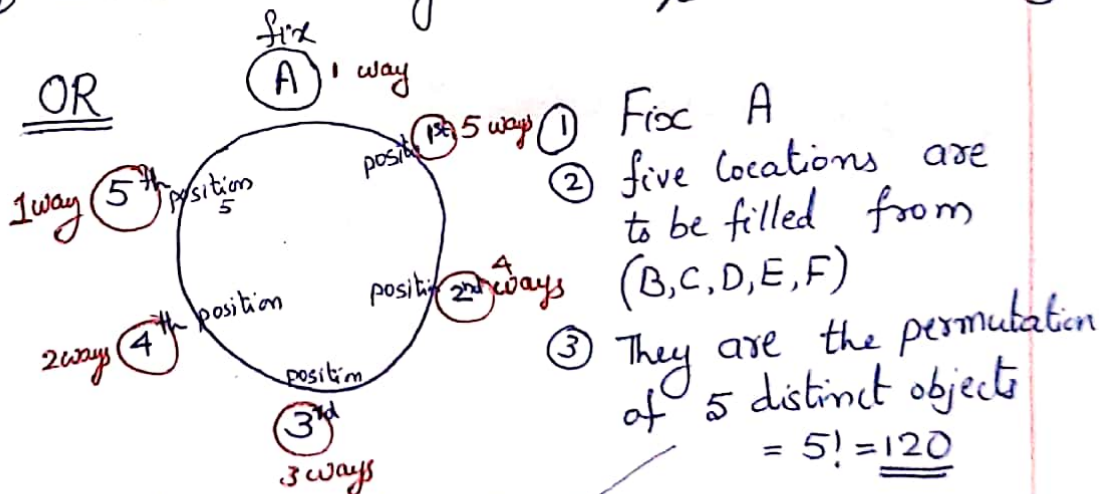 fix
OR
A 1 way
1st position 5 ways
2nd position 4 ways
3rd position
3 ways
4th position
2 ways
5th position 5
1 way
① Fix A
② five locations are
to be filled from
(B,C,D,E,F)
③ They are the permutation
of 5 distinct objects
= 5! = 120